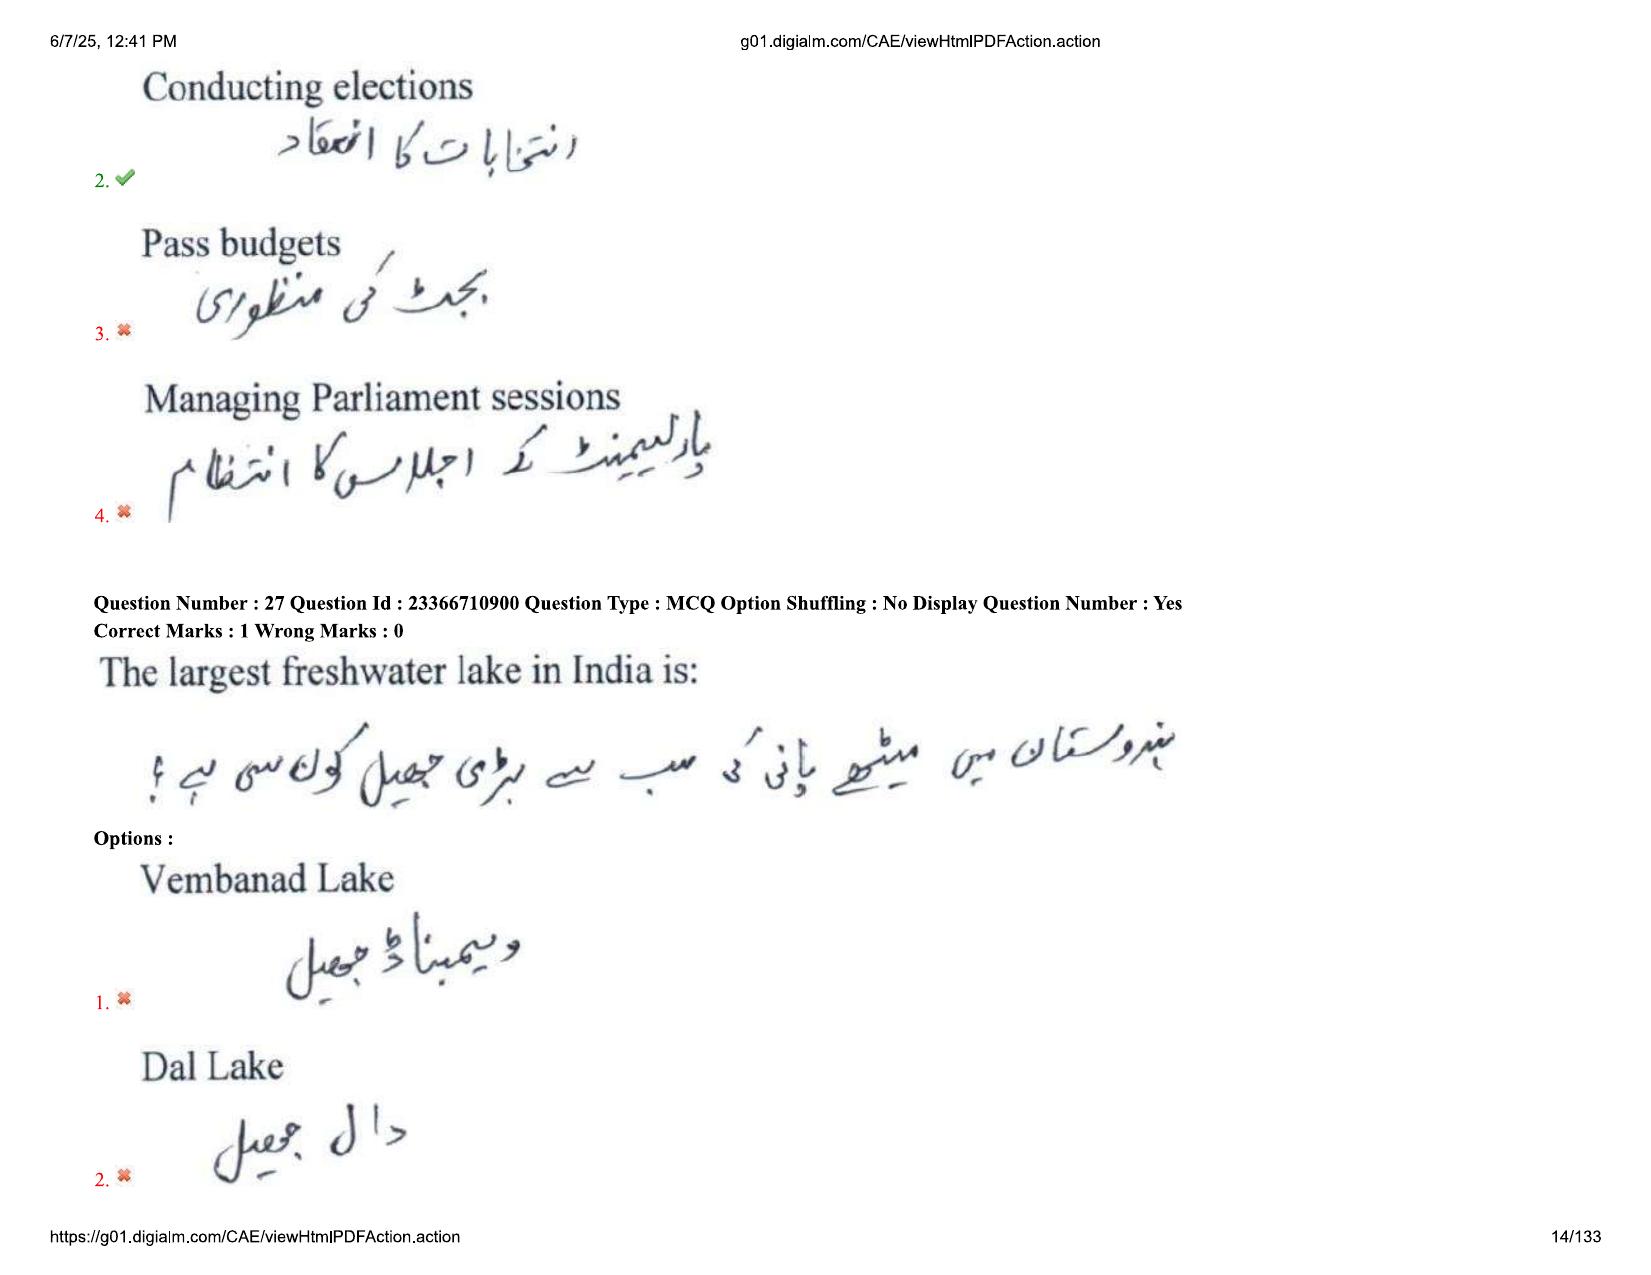 6/7/25, 12:41 PM
g01.digialm.com/CAE/viewHtmlPDFAction.action
Conducting elections
انتخابات کا انعقاد
2.
Pass budgets
بجٹ کی منظوری
3.
Managing Parliament sessions
پارلیمینٹ کے اجلاس کا انتظام
4.
Question Number : 27 Question Id : 23366710900 Question Type : MCQ Option Shuffling : No Display Question Number : Yes
Correct Marks : 1 Wrong Marks : 0
The largest freshwater lake in India is:
ہندوستان میں میٹھے پانی کی سب سے بڑی جھیل کون سی ہے ؟
Options :
Vembanad Lake
ویمبناڈ جھیل
1.
Dal Lake
دال جھیل
2.
https://g01.digialm.com/CAE/viewHtmlPDFAction.action
14/133